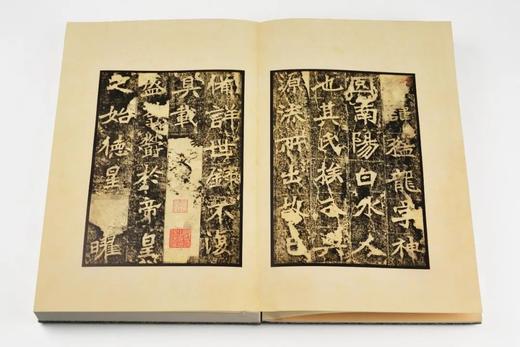 諱猛龍字神
囧南陽白水人
也其氏族分興
源流所出故已
備詳世錄不復
具載
盛蓊鬱於帝皇
之始德星曜